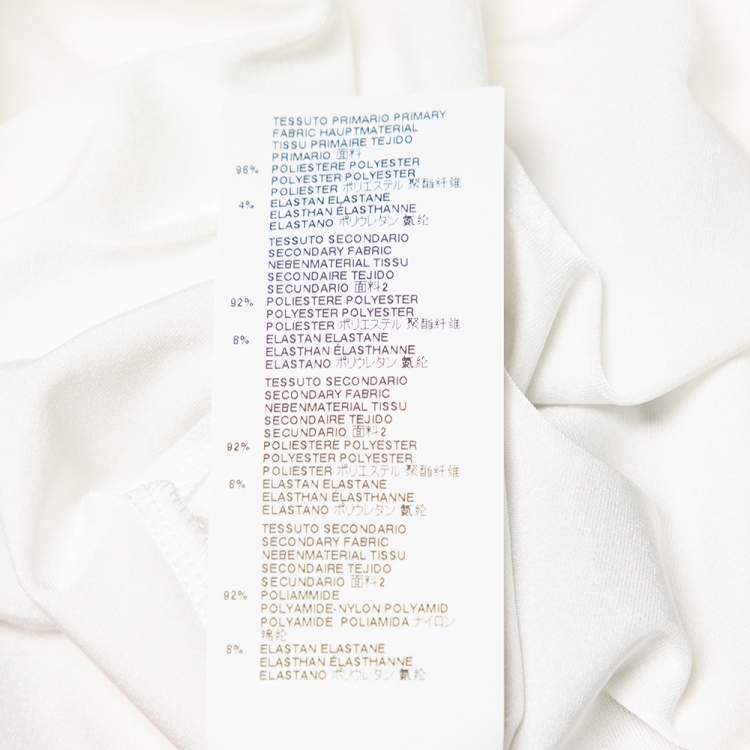 TESSUTO PRIMARIO PRIMARY
FABRIC HAUPTMATERIAL
TISSU PRIMAIRE TEJIDO
PRIMARIO 面料
96% POLIESTERE POLYESTER
POLYESTER POLYESTER
POLIESTER ポリエステル 聚酯纤维
4% ELASTAN ELASTANE
ELASTHAN ÉLASTHANNE
ELASTANO ポリウレタン 氨纶
TESSUTO SECONDARIO
SECONDARY FABRIC
NEBENMATERIAL TISSU
SECONDAIRE TEJIDO
SECUNDARIO 面料2
92% POLIESTERE POLYESTER
POLYESTER POLYESTER
POLIESTER ポリエステル 聚酯纤维
8% ELASTAN ELASTANE
ELASTHAN ÉLASTHANNE
ELASTANO ポリウレタン 氨纶
TESSUTO SECONDARIO
SECONDARY FABRIC
NEBENMATERIAL TISSU
SECONDAIRE TEJIDO
SECUNDARIO 面料2
92% POLIESTERE POLYESTER
POLYESTER POLYESTER
POLIESTER ポリエステル 聚酯纤维
8% ELASTAN ELASTANE
ELASTHAN ÉLASTHANNE
ELASTANO ポリウレタン 氨纶
TESSUTO SECONDARIO
SECONDARY FABRIC
NEBENMATERIAL TISSU
SECONDAIRE TEJIDO
SECUNDARIO 面料2
92% POLIAMMIDE
POLYAMIDE-NYLON POLYAMID
POLYAMIDE POLIAMIDA ナイロン
锦纶
8% ELASTAN ELASTANE
ELASTHAN ÉLASTHANNE
ELASTANO ポリウレタン 氨纶